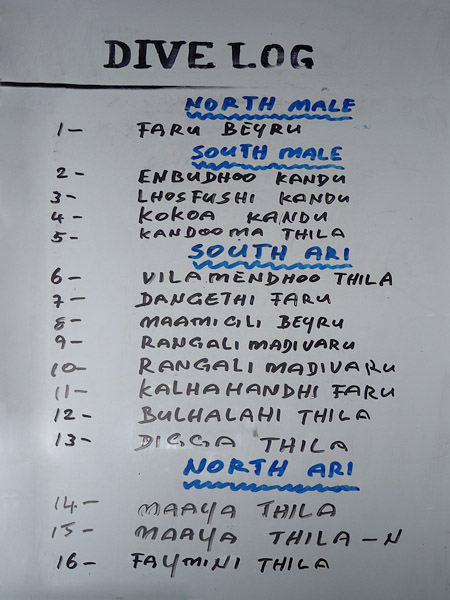 DIVE LOG
NORTH MALE
1- FARU BEYRU
SOUTH MALE
2- ENBUDHOO KANDU
3- LHOSFUSHI KANDU
4- KOKOA KANDU
5- KANDOOMA THILA
SOUTH ARI
6- VILAMENDHOO THILA
7- DANGETHI FARU
8- MAAMIGILI BEYRU
9- RANGALI MADIVARU
10- RANGALI MADIVARU
11- KALHAHANDHI FARU
12- BULHALAHI THILA
13- DIGGA THILA
NORTH ARI
14- MAAYA THILA
15- MAAYA THILA-N
16- FAYMINI THILA